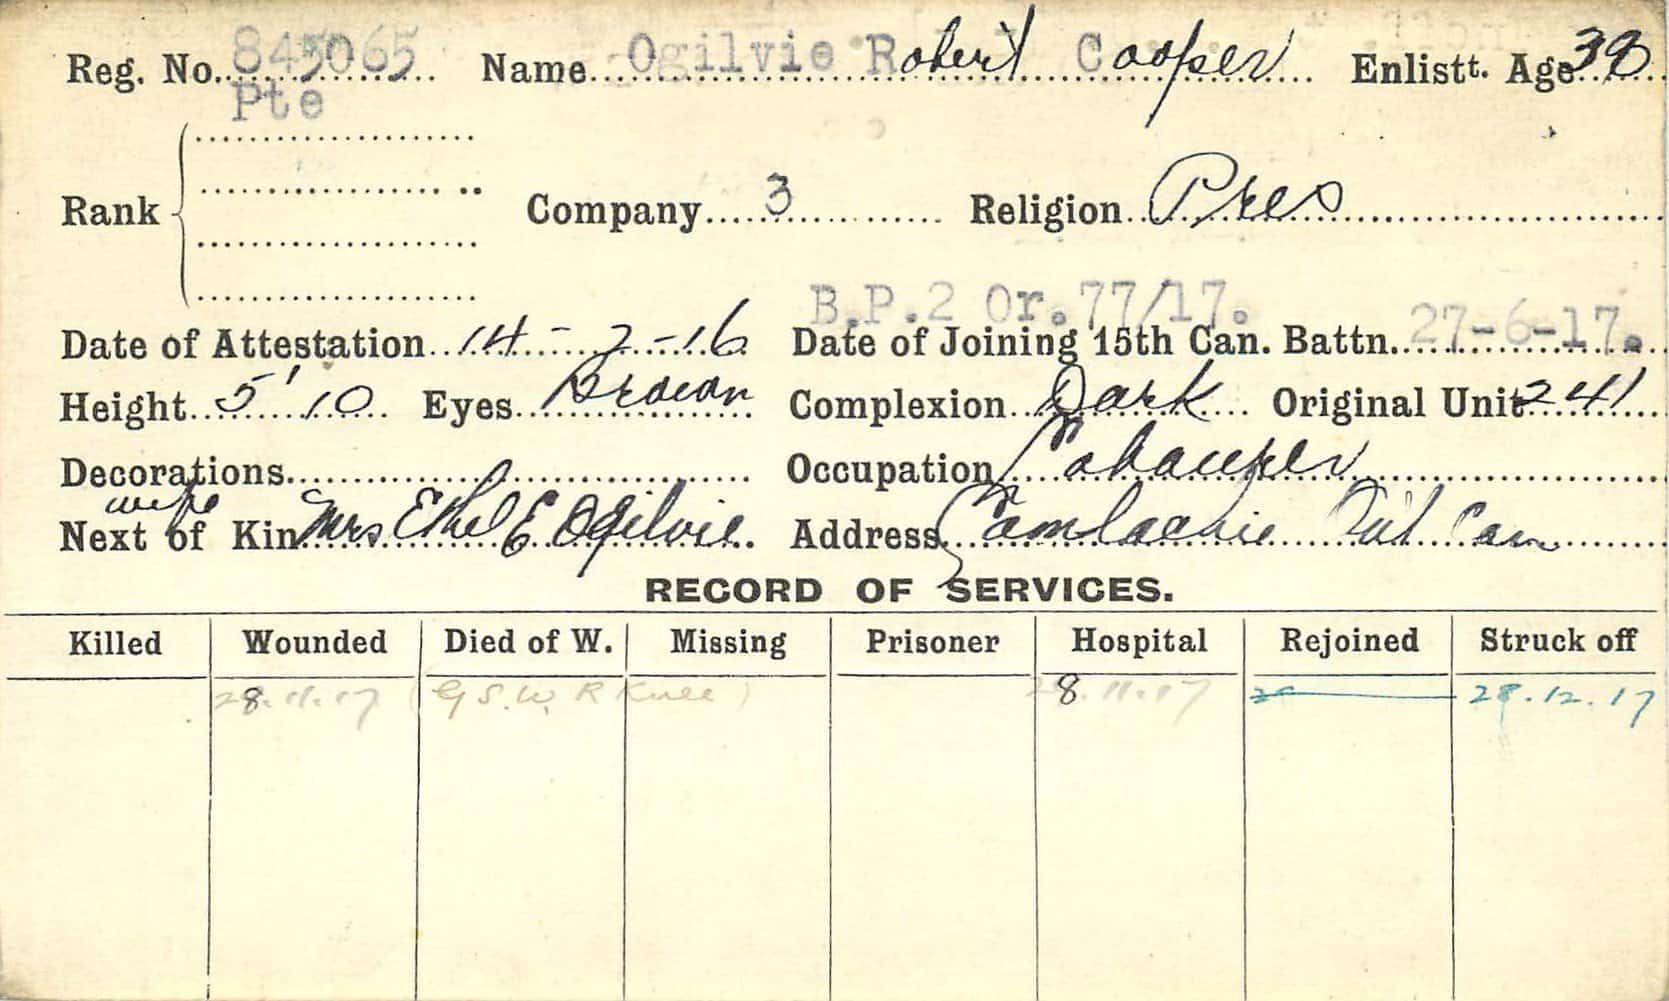 Reg. No. 845065 Name Ogilvie Robert Cooper Enlistt. Age 38
Pte
Rank Company 3 Religion Pres
B.P.2 Or.77/17.
Date of Attestation 14-2-16 Date of Joining 15th Can. Battn. 27-6-17.
Height 5' 10 Eyes Brown Complexion Dark Original Unit 241
Decorations Occupation
wife
Next of Kin Mrs Ethel E Ogilvie. Address Camlachie Ont Can
RECORD OF SERVICES.
Killed Wounded Died of W. Missing Prisoner Hospital Rejoined Struck off
28.11.17 (G S.W. R Knee) 28.11.17 28.12.17